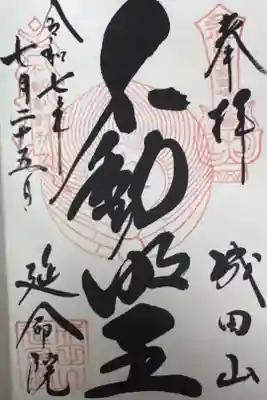 奉拝
成田山
不動明王
令和七年
七月二十五日
延命院